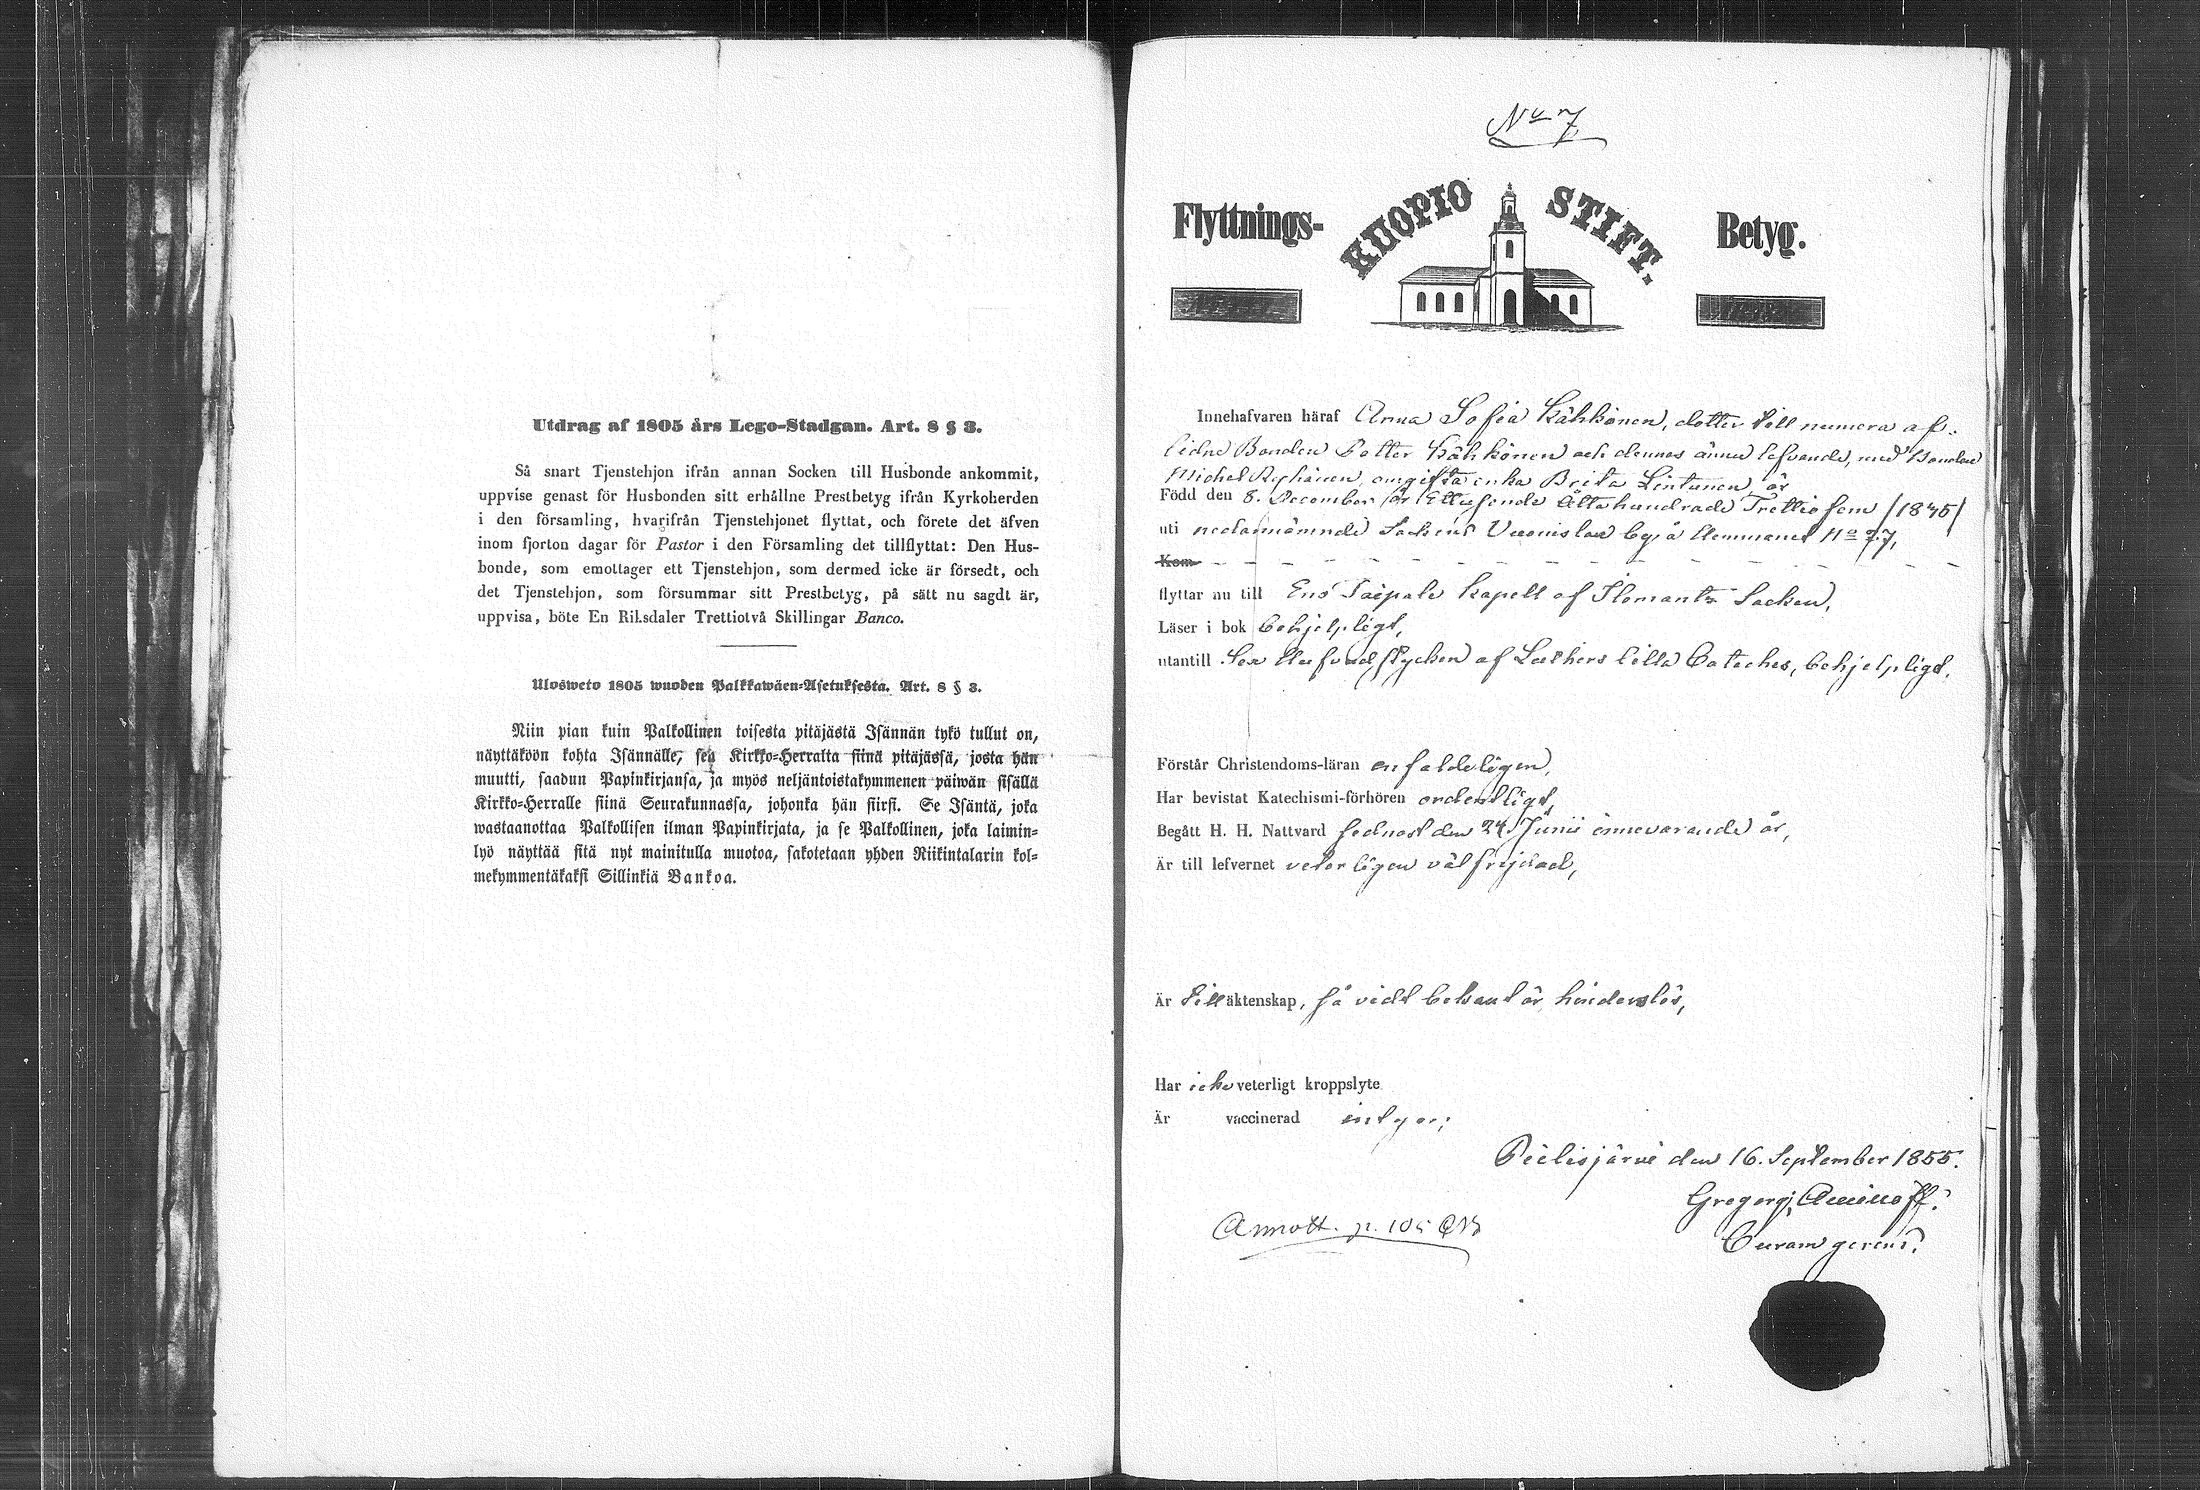 Utdrag af 1805 års Lego-Stadgan. Art. 8 § 3.
Så snart Tjenstehjon ifrån annan Socken till Husbonde ankommit,
uppvise genast för Husbonden sitt erhållne Prestbetyg ifrån Kyrkoherden
i den församling, hvarifrån Tjenstehjonet flyttat, och förete det äfven
inom fjorton dagar för Pastor i den Församling det tillflyttat: Den Hus-
bonde, som emottager ett Tjenstehjon, som dermed icke är försedt, och
det Tjenstehjon, som försummar sitt Prestbetyg, på sätt nu sagdt är,
uppvisa, böte En Riksdaler Trettiotvå Skillingar Banco.
Ulosweto 1805 wuoden Palkkawäen-Asetuksesta. Art. 8 § 3.
Niin pian kuin Palkollinen toisesta pitäjästä Isännän tykö tullut on,
näyttäköön kohta Isännälle, sen Kirkko-Herralta siinä pitäjässä, josta hän
muutti, saadun Papinkirjansa, ja myös neljäntoistakymmenen päiwän sisällä
Kirkko-Herralle siinä Seurakunnassa, johonka hän siirsi. Se Isäntä, joka
wastaanottaa Palkollisen ilman Papinkirjata, ja se Palkollinen, joka laimin-
lyö näyttää sitä nyt mainitulla muotoa, sakotetaan yhden Riikintalarin kol-
mekymmentäkaksi Sillinkiä Bankoa.
No 7
Flyttnings- KUOPIO STIFT. Betyg.
Innehafvaren häraf Anna Sofia Kähkönen, dotter till numera af-
lidne Bonden Petter Kähkönen och dennes ännu lefvande, med Bonden
Michel Ryhänen, omgifta enka Brita Lintunen är
Född den 8. December år Ettusende Åttahundrade Trettiofem /1835/
uti nedannämnde Sockens Vuonislax by å Hemmanet No 27,
Kom
flyttar nu till Eno Taipale Kapell af Ilomants Socken,
Läser i bok behjelpligt,
utantill Sex Hufvudstycken af Luthers lilla Cateches, behjelpligt.
Förstår Christendoms-läran enfaldeligen,
Har bevistat Katechismi-förhören ordentligt,
Begått H. H. Nattvard sednast den 24 Junii innevarande år,
Är till lefvernet veterligen välfrejdad,
Är till äktenskap, så vidt bekant är, hinderslös,
Har icke veterligt kroppslyte
Är vaccinerad intygar;
Pielisjärvi den 16. September 1855.
Gregori Aminoff.
Curam gerens.
Annott. p. 105